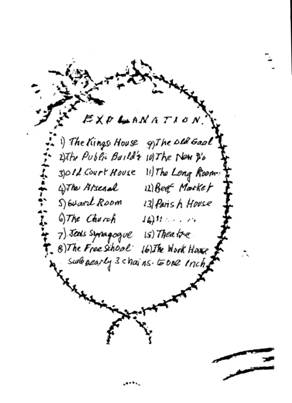 EXPLANATION.
1) The Kings House 9) The Old Gaol
2) The Public Build's 10) The New Do
3) Old Court House 11) The Long Room
4) The Arsenal 12) Beef Market
5) Guard Room 13) Parish House
6) The Church 14) 11 ......
7) Jews Synagogue 15) Theatre
8) The Free School 16) The Work House
Scale nearly 3 chains to one Inch